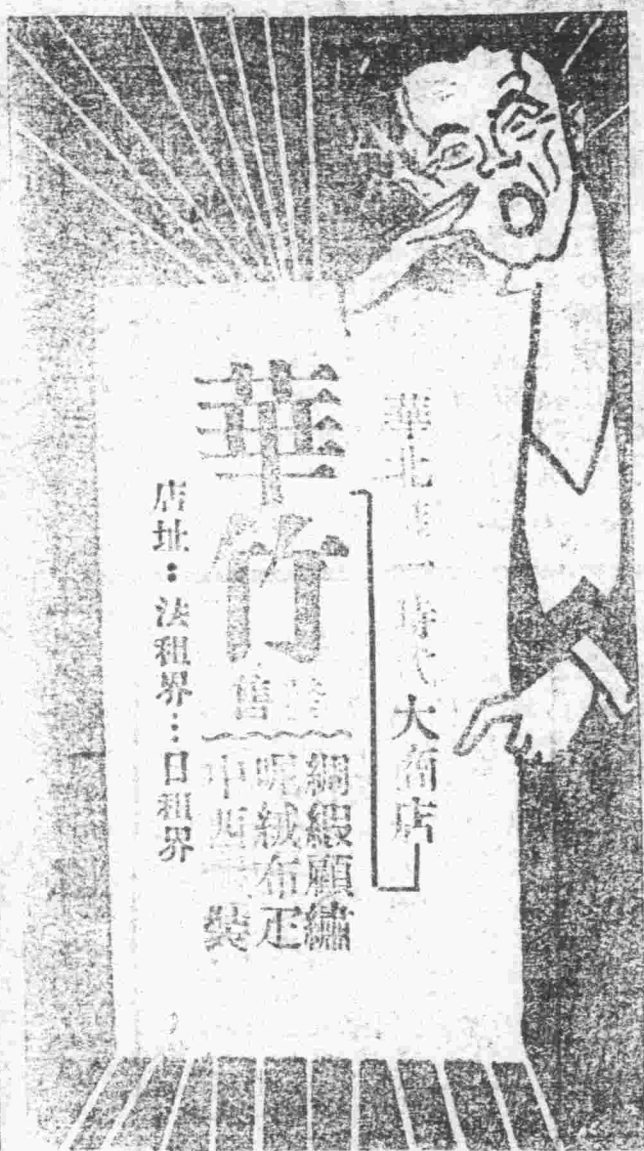 華北第一時代大商店
華竹
售
綢緞顧繡
呢絨布疋
中西裝
店址：法租界…日租界